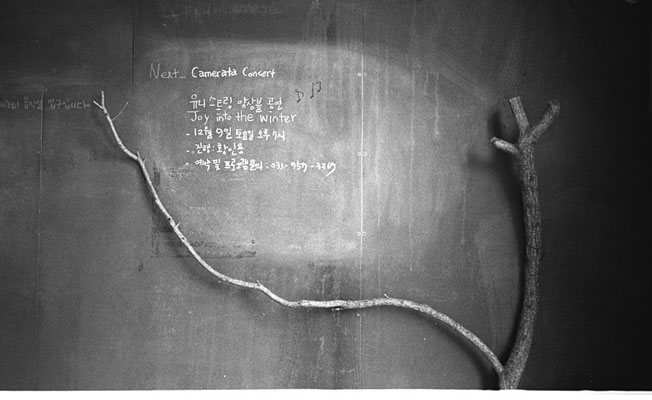 Next_ Camerata Concert
유니 스트링 앙상블 공연
Joy into the winter
- 12월 9일 토요일 오후 7시
- 진행 : 황인용
- 예약 및 프로그램 문의 : 031-957-3369